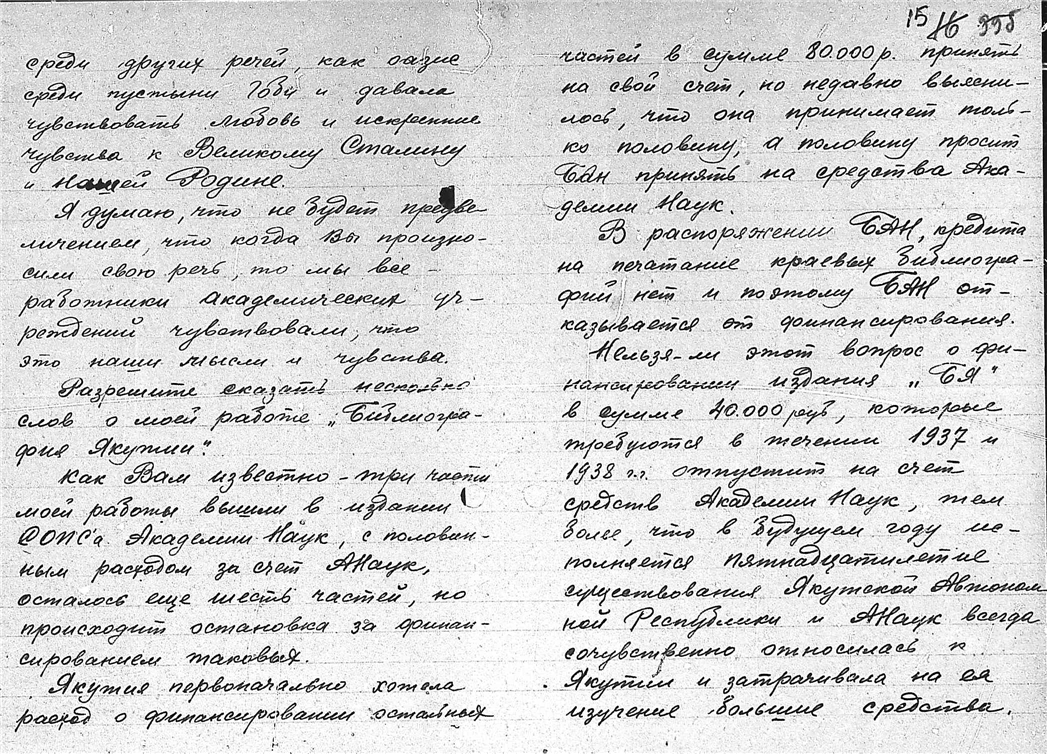 15 16 335
среди других речей, как оазис
среди пустыни Гоби и давала
чувствовать любовь и искренние
чувства к Великому Сталину
и нашей Родине.
Я думаю, что не будет преуве
личением, что когда Вы произно-
сили свою речь, то мы все -
работники академических уч-
реждений чувствовали, что
это наши мысли и чувства.
Разрешите сказать несколько
слов о моей работе „Библиогра-
фия Якутии".
Как Вам известно - три части
моей работы вышли в издании
СОПС'а Академии Наук, с половин-
ным расходом за счет АНаук,
осталось еще шесть частей, но
происходит остановка за финан-
сированием таковых.
Якутия первоначально хотела
расход о финансировании остальных
частей в сумме 80.000 р. принять
на свой счет, но недавно выясни-
лось, что она принимает толь-
ко половину, а половину просит
БАН принять на средства Ака-
демии Наук.
В распоряжении БАН, кредита
на печатание краевых библиогра-
фий нет и поэтому БАН от-
казывается от финансирования.
Нельзя-ли этот вопрос о фи-
нансировании издания „БЯ"
в сумме 40.000 руб, которые
требуются в течении 1937 и
1938 г.г. отпустит на счет
средств Академии Наук, тем
более, что в будущем году ис-
полняется пятнадцатилетие
существования Якутской Автоном
ной Республики и АНаук всегда
сочувственно относилась к
Якутии и затрачивала на ея
изучение большие средства.